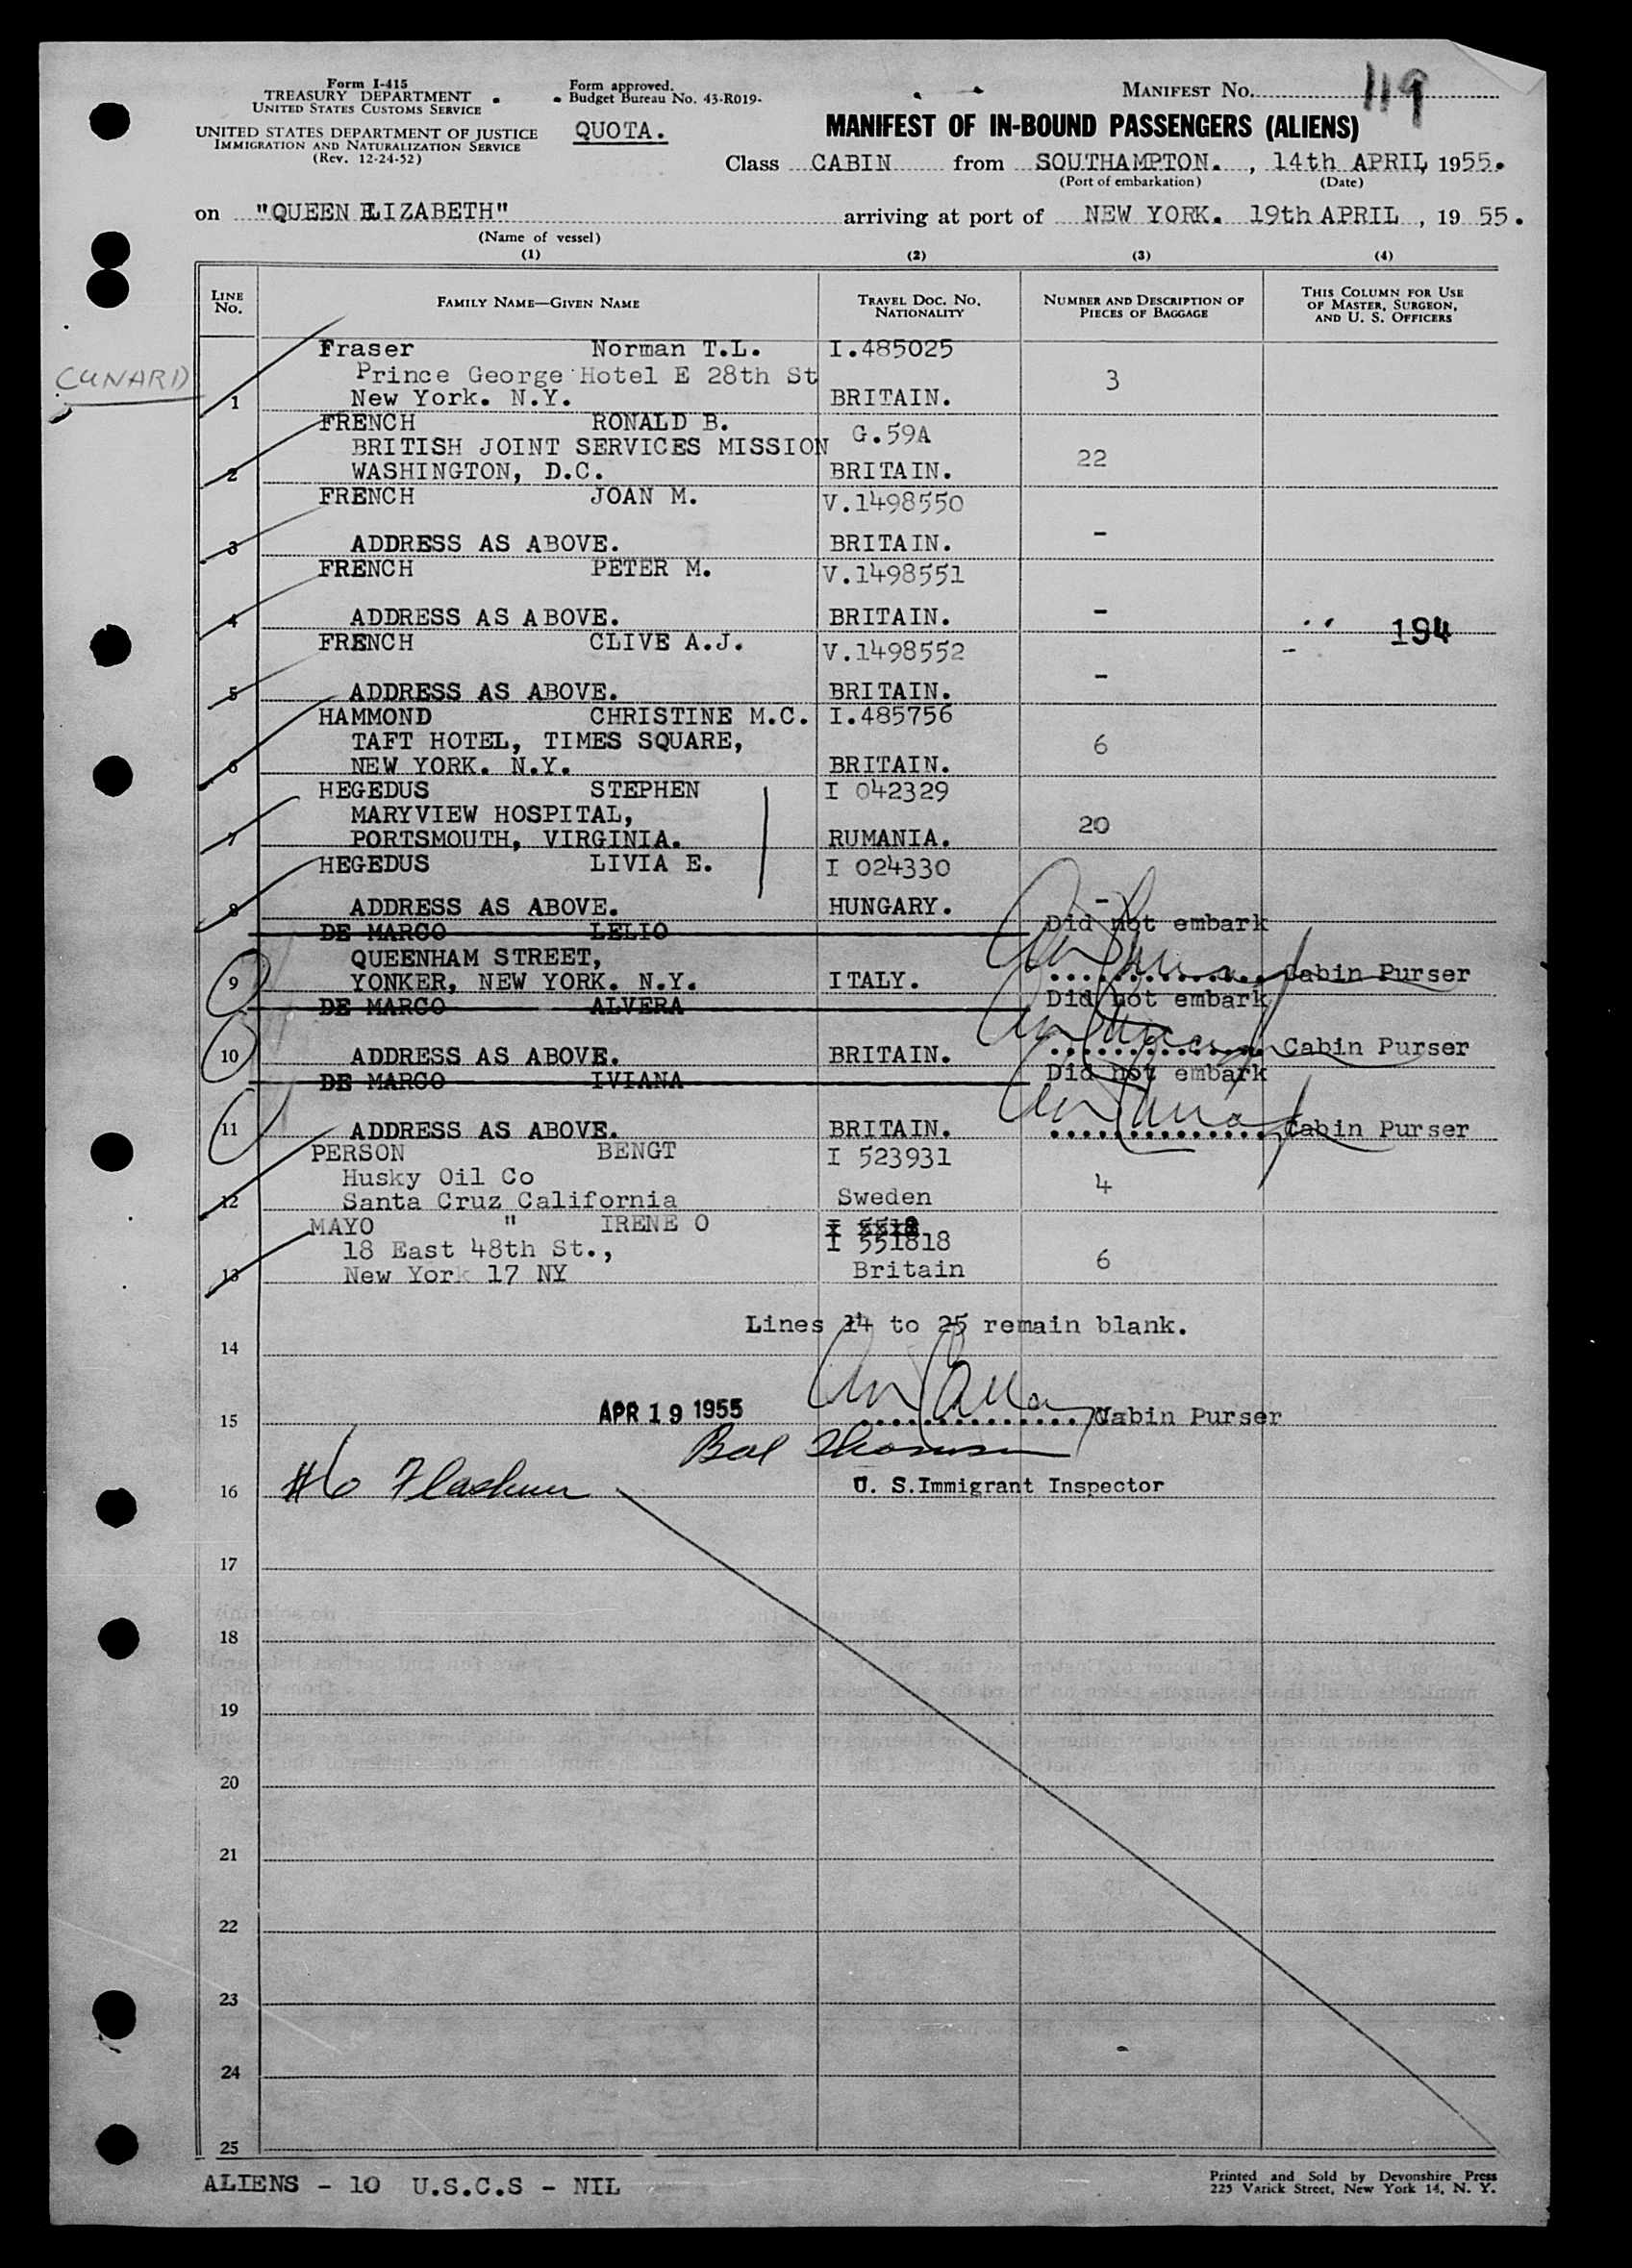 Form I-415
TREASURY DEPARTMENT
UNITED STATES CUSTOMS SERVICE
UNITED STATES DEPARTMENT OF JUSTICE
IMMIGRATION AND NATURALIZATION SERVICE
(Rev. 12-24-52)
Form approved.
Budget Bureau No. 43-R019.
QUOTA.
MANIFEST No. 119
MANIFEST OF IN-BOUND PASSENGERS (ALIENS)
Class CABIN from SOUTHAMPTON. , 14th APRIL, 1955.
(Port of embarkation) (Date)
on "QUEEN ELIZABETH" arriving at port of NEW YORK. 19th APRIL , 19 55.
(Name of vessel)
(1) (2) (3) (4)
LINE No. FAMILY NAME—GIVEN NAME TRAVEL DOC. NO. NATIONALITY NUMBER AND DESCRIPTION OF PIECES OF BAGGAGE THIS COLUMN FOR USE OF MASTER, SURGEON, AND U. S. OFFICERS
CUNARD
Fraser Norman T.L. I.485025
Prince George Hotel E 28th St 3
1 New York. N.Y. BRITAIN.
FRENCH RONALD B. G.59A
BRITISH JOINT SERVICES MISSION 22
2 WASHINGTON, D.C. BRITAIN.
FRENCH JOAN M. V.1498550
3 ADDRESS AS ABOVE. BRITAIN. -
FRENCH PETER M. V.1498551
4 ADDRESS AS ABOVE. BRITAIN. -
194
FRENCH CLIVE A.J. V.1498552
5 ADDRESS AS ABOVE. BRITAIN. -
HAMMOND CHRISTINE M.C. I.485756
TAFT HOTEL, TIMES SQUARE, 6
6 NEW YORK. N.Y. BRITAIN.
HEGEDUS STEPHEN I 042329
MARYVIEW HOSPITAL, 20
7 PORTSMOUTH, VIRGINIA. RUMANIA.
HEGEDUS LIVIA E. I 024330
8 ADDRESS AS ABOVE. HUNGARY. -
DE MARCO LELIO Did not embark
QUEENHAM STREET,
9 YONKER, NEW YORK. N.Y. ITALY. Cabin Purser
DE MARCO ALVERA Did not embark
10 ADDRESS AS ABOVE. BRITAIN. Cabin Purser
DE MARCO IVIANA Did not embark
11 ADDRESS AS ABOVE. BRITAIN. Cabin Purser
PERSON BENGT I 523931
Husky Oil Co 4
12 Santa Cruz California Sweden
MAYO " IRENE O
18 East 48th St., I 551818
13 New York 17 NY Britain 6
Lines 14 to 25 remain blank.
14
15 APR 19 1955 Cabin Purser
16 #6 U. S.Immigrant Inspector
17
18
19
20
21
22
23
24
25
ALIENS - 10 U.S.C.S - NIL
Printed and Sold by Devonshire Press
225 Varick Street, New York 14, N. Y.